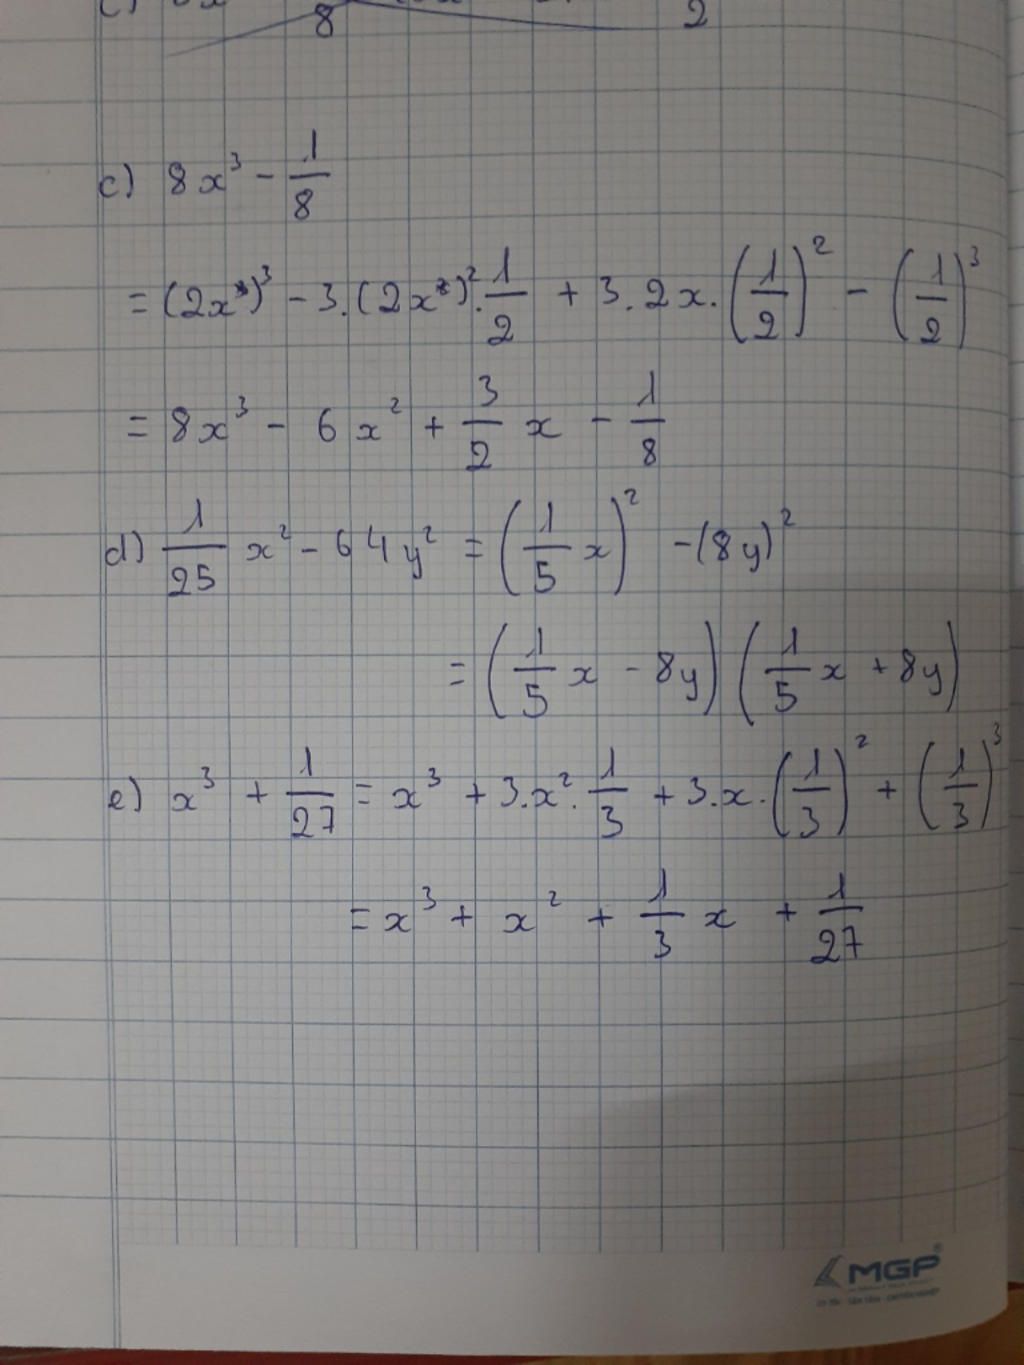 8 2
c) 8x³ - 1/8
= (2x)³ - 3.(2x)².1/2 + 3.2x.(1/2)² - (1/2)³
= 8x³ - 6x² + 3/2 x - 1/8
d) 1/25 x² - 64y² = (1/5 x)² - (8y)²
= (1/5 x - 8y) (1/5 x + 8y)
e) x³ + 1/27 = x³ + 3.x².1/3 + 3.x.(1/3)² + (1/3)³
= x³ + x² + 1/3 x + 1/27
MGP